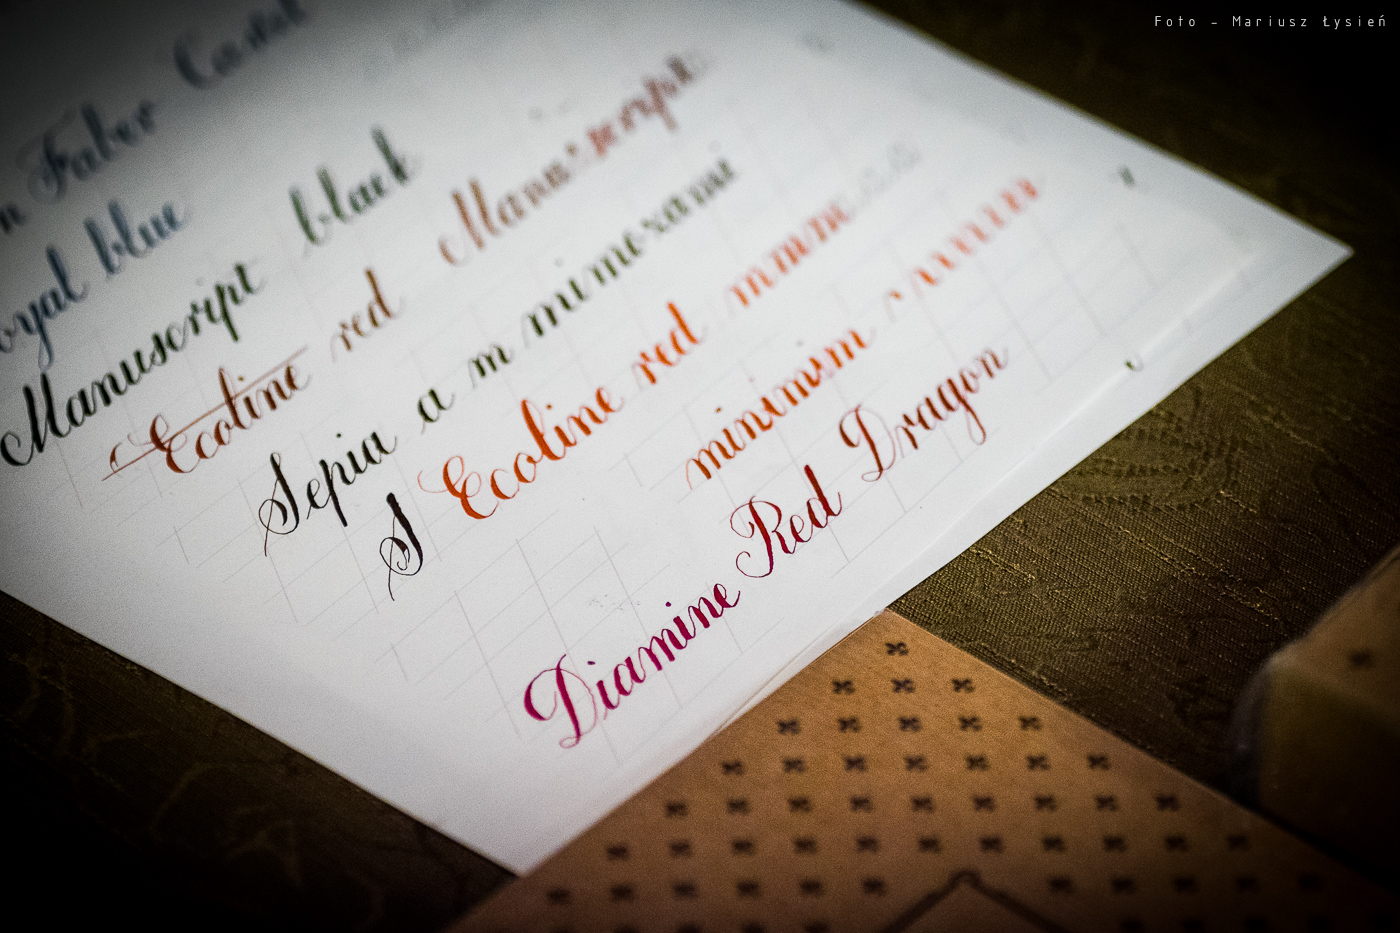 Foto - Mariusz Łysień
n Faber Castel
oyal blue
Manuscript black
Ecoline red Manuscript
Sepia a m mimozami
S Ecoline red mmmm
minimum
Diamine Red Dragon